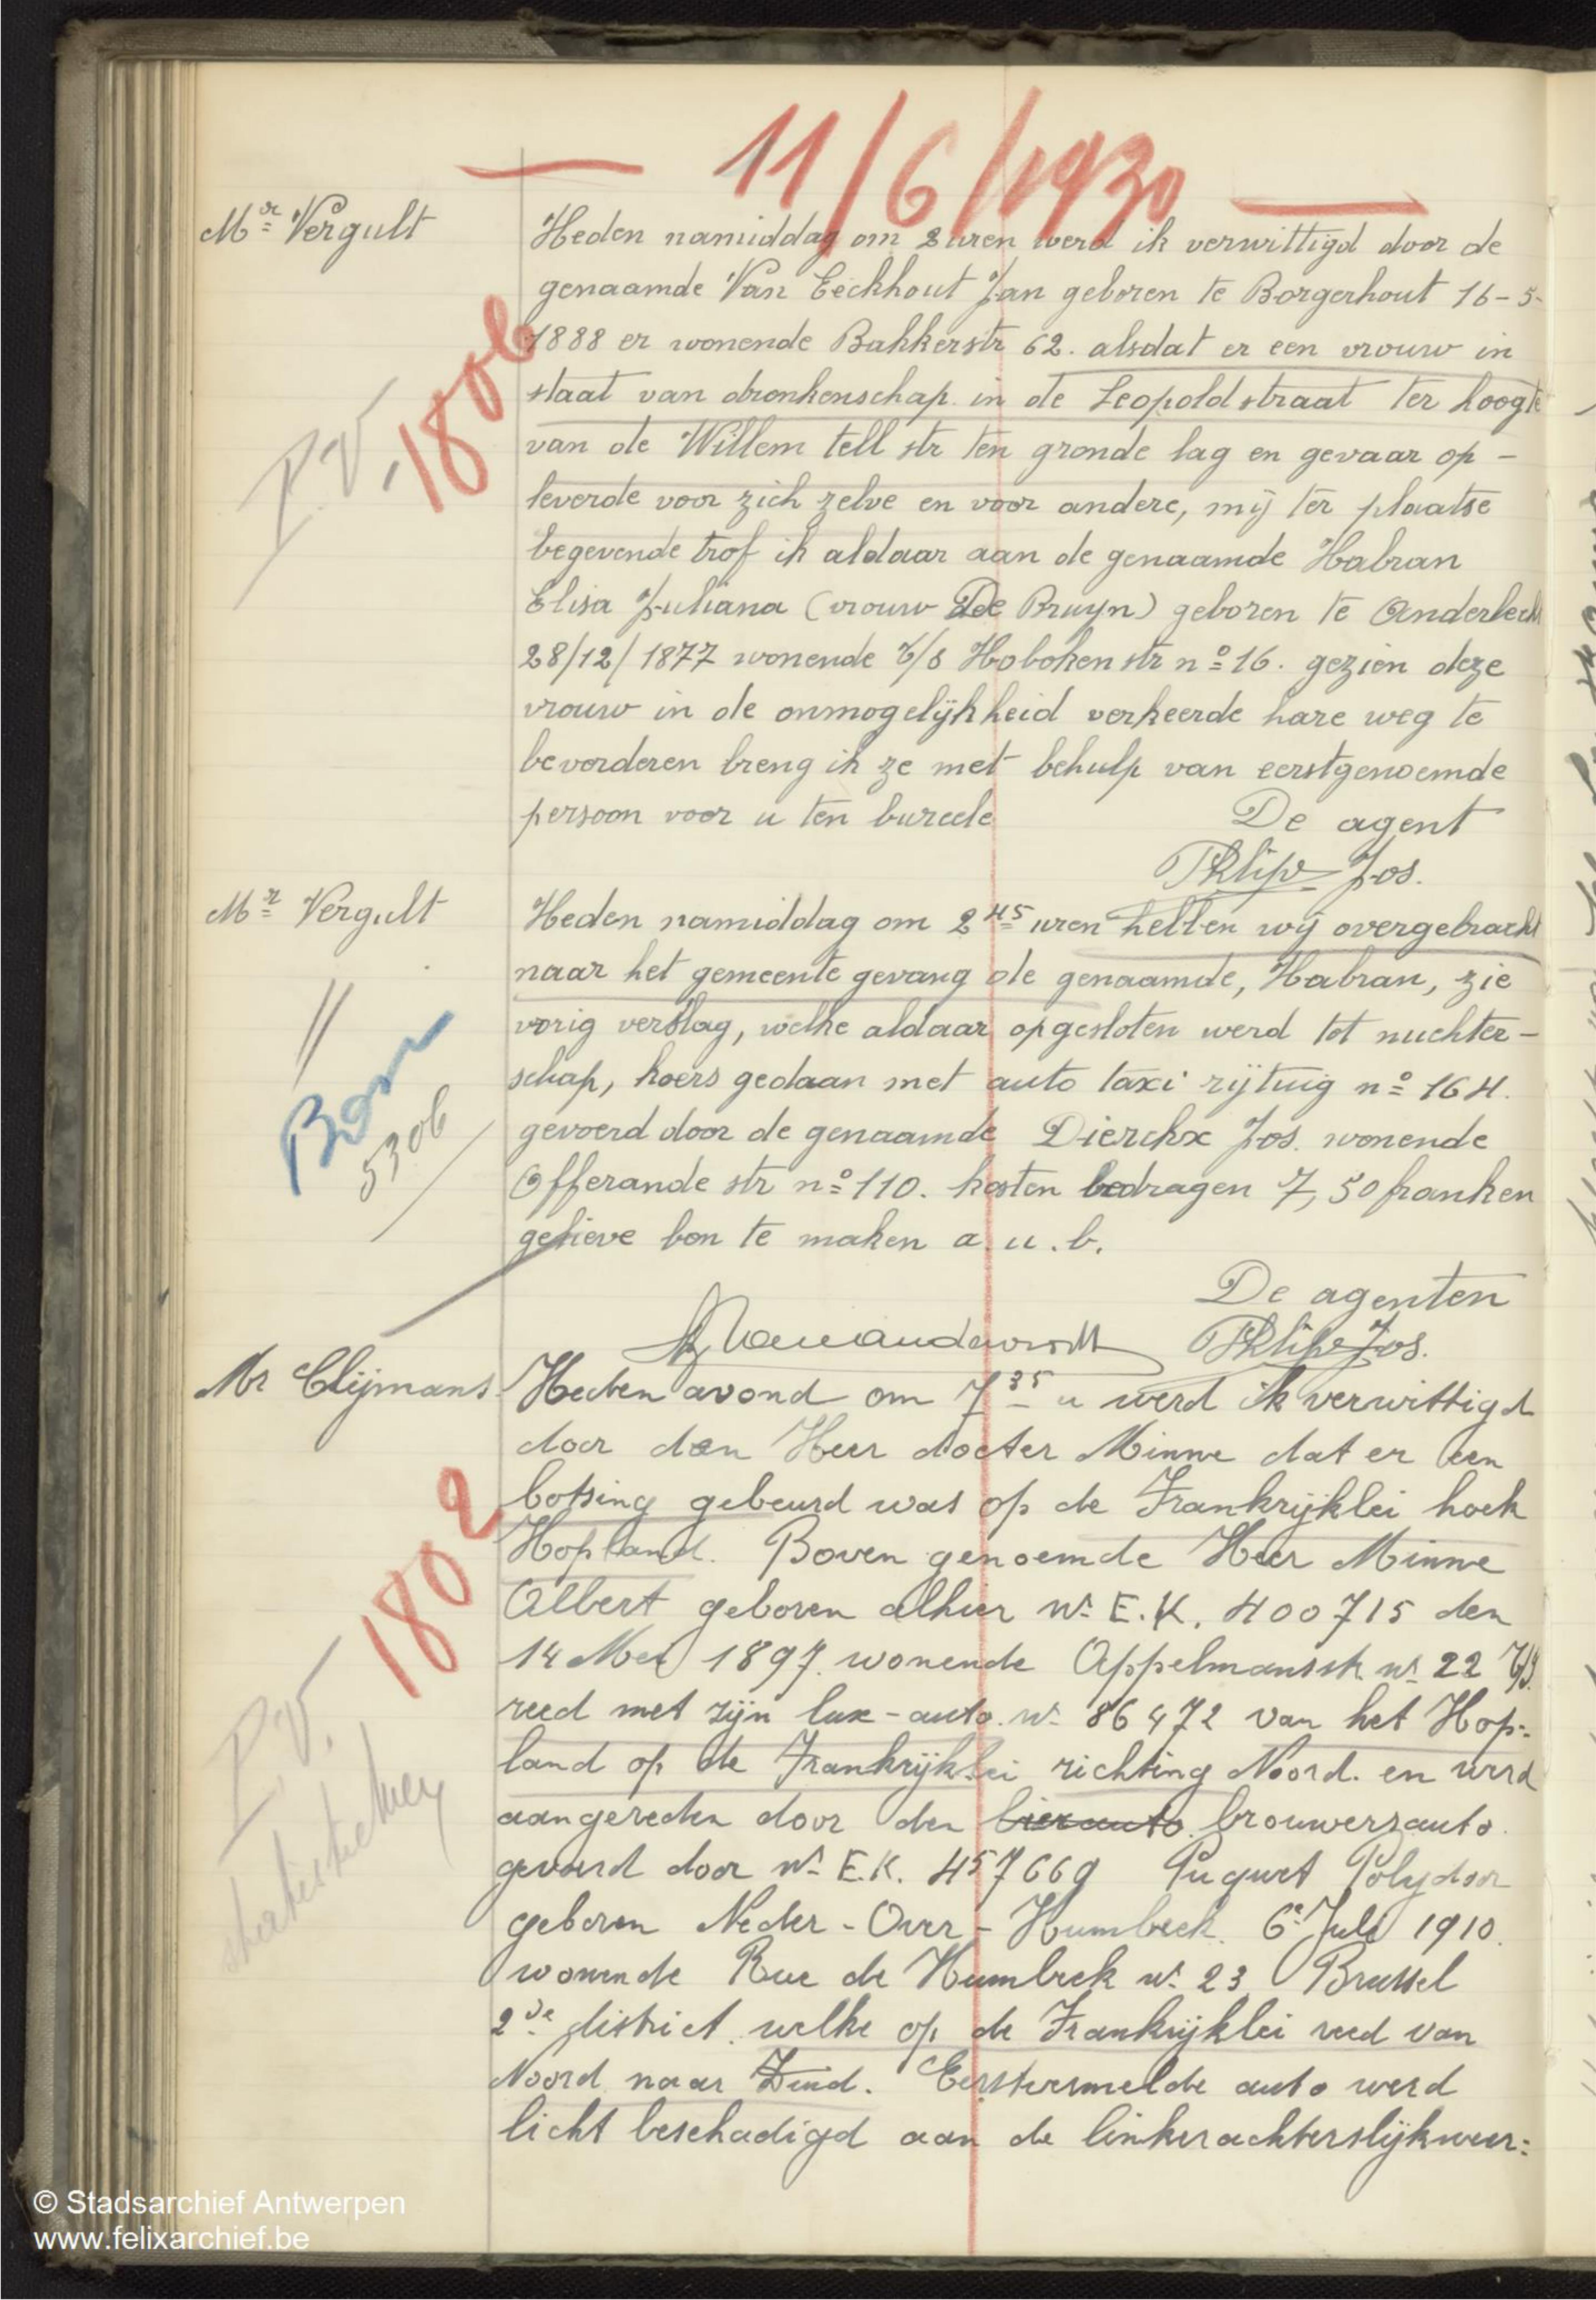 — 11/6/1930 —
Mr Vergult
Heden namiddag om 2 uren werd ik verwittigd door de
genaamde Van Eeckhout Jan geboren te Borgerhout 16-5-
1888 er wonende Bakkerstr 62. alsdat er een vrouw in
staat van dronkenschap in de Leopoldstraat ter hoogte
van de Willem tell str ten gronde lag en gevaar op-
leverde voor zich zelve en voor andere, mij ter plaatse
begevende trof ik aldaar aan de genaamde Habran
Elisa Juliana (vrouw De Bruyn) geboren te Anderlecht
28/12/1877 wonende t/s Hoboken str no 16. gezien deze
vrouw in de onmogelijkheid verkeerde hare weg te
bevorderen breng ik ze met behulp van eerstgenoemde
persoon voor u ten bureele
De agent
Philips Jos.
P.V. 1806
Mr Vergult
Heden namiddag om 2 45 uren hebben wij overgebracht
naar het gemeente gevang de genaamde, Habran, zie
vorig verslag, welke aldaar opgesloten werd tot nuchter-
schap, koers gedaan met auto taxi rijtuig no 164.
gevoerd door de genaamde Dierckx Jos. wonende
Offerande str no 110. kosten bedragen 7,50 franken
gelieve bon te maken a.u.b.
De agenten
Philips Jos.
//
Bon
5306
Mr Clijmans
Heden avond om 7 35 u werd ik verwittigd
door den Heer docter Minne dat er een
botsing gebeurd was op de Frankrijklei hoek
Hopland. Boven genoemde Heer Minne
Albert geboren alhier No E.K. 400715 den
14 Mei 1897. wonende Appelmansstr no 22 t/s.
reed met zijn lux-auto no 86472 van het Hop=
land op de Frankrijklei richting Noord. en werd
aangereden door den bierauto brouwersauto
gevoerd door no E.K. 457669 Polydoor
geboren Neder-Over-Humbeek. 6e Juli 1910.
wonende Rue de Humbeek no 23 Brussel
2de district. welke op de Frankrijklei reed van
Noord naar Zuid. Eerstvermelde auto werd
licht beschadigd aan de linkerachterslijkweer=
P.V. 1802
© Stadsarchief Antwerpen
www.felixarchief.be